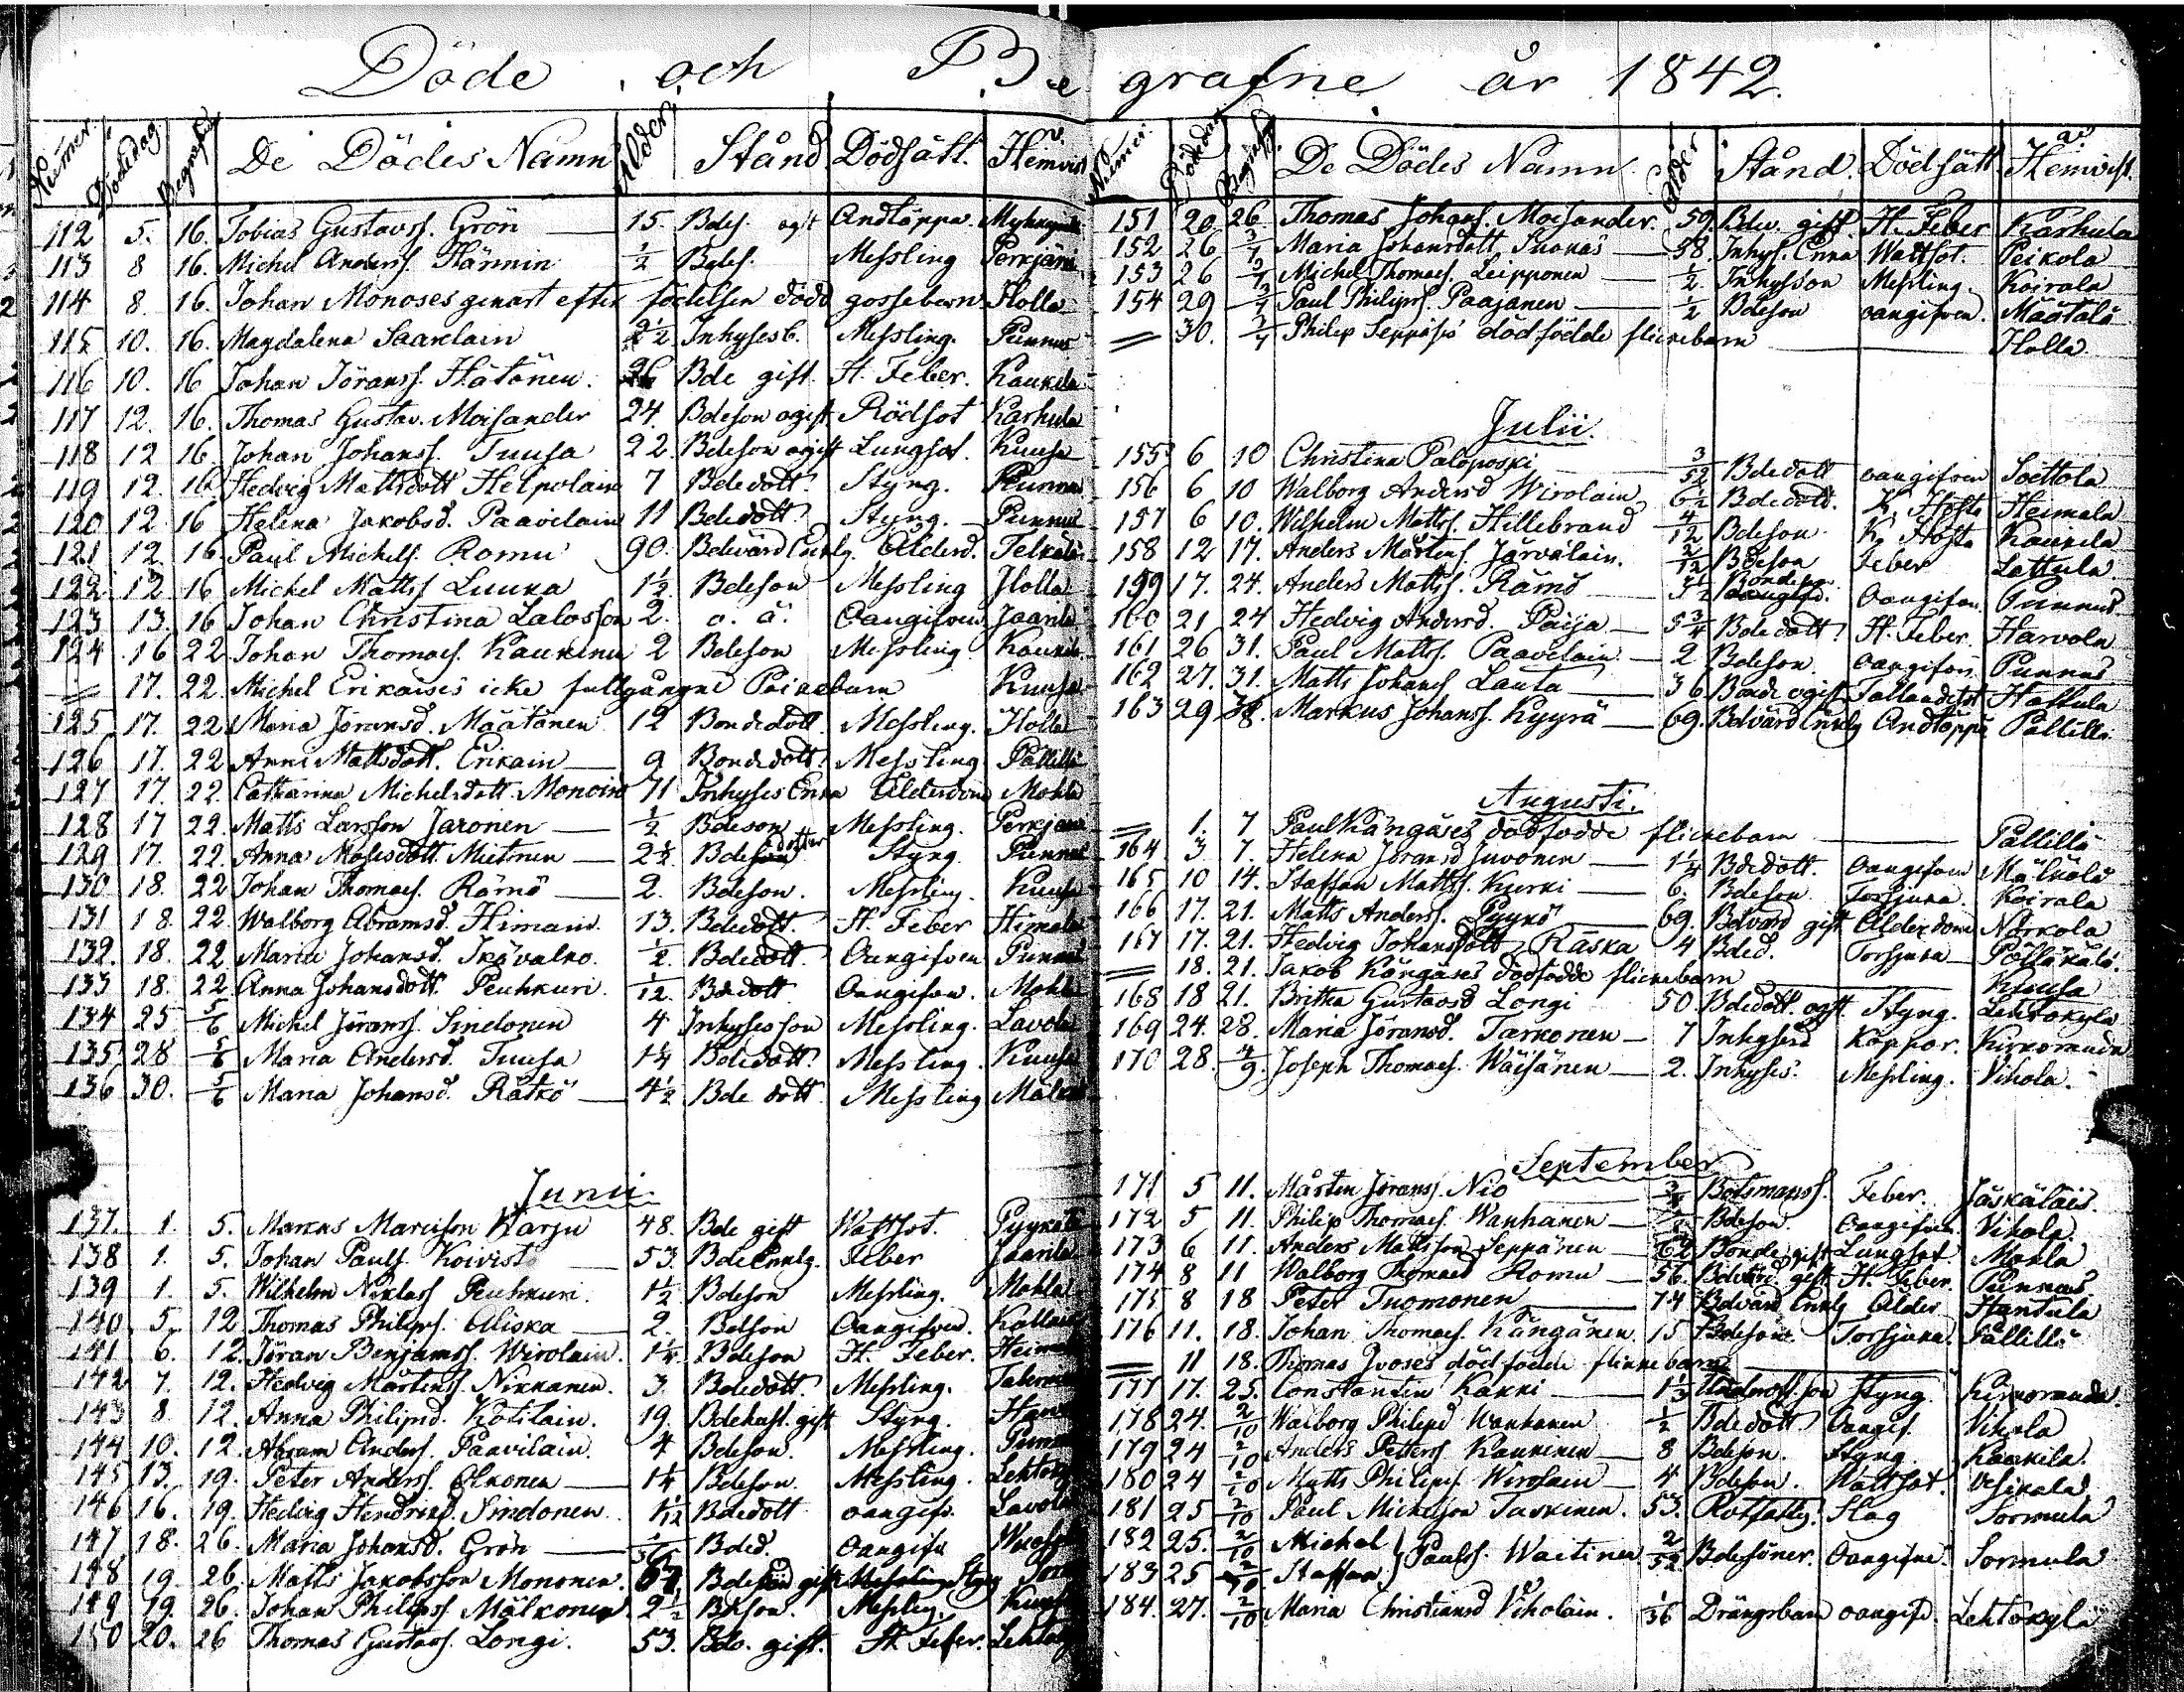 Döde och Be grafne år 1842.
Numer. Dödsdag. Begrafn. De Dödes Namn Ålder. Stånd Dödsätt. Hemvist
112 5. 16. Tobias Gustavss. Grön 15. Bdes. ogt Andtäppa
113 8 16. Michel Anderss. Hännin 1/2 Bdes. Messling Perkjärvi
114 8. 16. Johan Monoses genast efter födelsen död gossebarn Holla
115 10. 16. Magdalena Saarelain 2 1/2 Inhyses b. Messling. Punnus
116 10. 16 Johan Jöranss. Hätönen. 26 Bde gift. H. Feber. Kaukila
117 12. 16. Thomas Gustav. Moisander 24. Bdeson ogift Rödsot Karhula
118 12 16. Johan Johanss. Tuusa 22. Bdeson ogift Lungsot. Kuusa
119 12. 16. Hedvig Mattsdott Helpolain 7 Bdedott. Styng. Punnus
120 12 16 Helena Jakobsd. Paavilain 11 Bdedott. Styng. Punnus
121 12 16 Paul Michelss. Romu 90. Bdevärd Enklg. Ålderd. Telkälä
122. 12 16 Michel Mattss Luuka 1 1/2. Bdeson Messling Holla
123 13. 16 Johan Christina Lalosson 2. o. ä. Oangifven Jaarila
124 16 22 Johan Thomass. Kaukinen 2 Bdeson Messling. Kaukila
= 17. 22. Michel Erikaises icke fullgångne Poikebarn Kuusa
125 17. 22 Maria Jöransd. Määtänen 12 Bondedott. Messling. Holla
126 17. 22 Anna Mattsdott. Erikain 9 Bondedott. Messling Pällilä
127 17. 22. Catharina Michelsdott. Monoin 71 Inhyses Enka Ålderdom Mohla
128 17 22. Matts Larsson Jaronen 1/2 Bdeson Messling. Perkjärvi
129 17. 22. Anna Mosesdott. Mietinen 2 1/2. Bdesdotter Styng Punnus
130 18. 22 Johan Thomass. Rämö 2. Bdeson. Messling. Kuusa
131 18. 22. Walborg Abramsd. Himain. 13. Bdedott. H. Feber Heimala
132. 18. 22 Maria Johansd. Ikävalko. 1/2. Bdedott. Oangifven Punnus
133 18. 22 Anna Johansdott. Peuhkuri. 1/12. Bdedott Oangifven. Mohla
134 25 5/6 Michel Jöranss. Sindonen 4 Inhyses son Messling. Lavola
135 28 5/6 Maria Andersd. Tuusa 1 1/4 Bdedott. Messling. Kuusa
136 30. 5/6 Maria Johansd. Rätkö 4 1/2 Bde dott. Messling
Junii
137. 1. 5. Markus Marcisson Karju 48. Bde gift Wattsot.
138 1. 5. Johan Paulss. Koivisto 53. Bde Enklg. Feber Jaarila
139 1. 5. Wilhelm Niklass Peuhkuri. 1 1/2 Bdeson Messling. Mohla
140 5. 12. Thomas Philipss. Aliska 2. Bdson Oangifven.
141 6. 12. Jöran Benjamss. Wirolain. 1 1/4. Bdeson H. Feber. Heimala
142 7. 12. Hedvig Mårtenss. Nikkanen. 3. Bdedott. Messling.
143 8 12. Anna Philipsd. Kotilain. 19. Bdehust. gift Styng.
144 10. 12. Abram Anderss. Paavilain. 4 Bdeson. Messling. Punnus
145 13. 19. Peter Anderss. Olkonen 1 1/4 Bdeson. Messling.
146 16. 19. Hedvig Hendrikss. Sindonen. 1/12 Bdedott oangifv. Lavola
147 18. 26. Maria Johansd. Grön Bded. Oangifv.
148 19 26. Matts Jakobsson Mononen. 67 Bde gift Styng
149 19. 26. Johan Philipss Mälkonen 2 1/2 Bdeson. Messling.
150 20. 26 Thomas Gustavss. Longi. 53. Bde. gift. H. Feber.
Numer. Dödsdag Begrafn. De Dödes Namn. Ålder Stånd. Dödsätt Hemvist.
151 20. 26. Thomas Johanss. Moisander. 59. Bde. gift. H. Feber Karhula
152 26 3/7 Maria Johansdott. Suokas 58. Inhys. Enka Wattsot. Peikola
153 26 3/7 Michel Thomass. Leipponen 1/2. Inhysson Messling. Koirala
154 29 3/7 Paul Philipss. Paajanen 1/2 Bdeson oangifven. Määtälä
= 30. 3/7 Philip Seppäses dödfödde flickebarn Holla.
Julii.
155 6 10 Christina Paloposki 3/52 Bdedott oangifven Soittola
156 6 10 Walborg Andersd Wirolain 6 1/2 Bdedott. K. Hosta Heimala
157 6 10. Wilhelm Mattss. Hillebrand 4/12 Bdeson K. Hosta Kaukila
158 12 17. Anders Mårtenss. Järvälain. 2/12 Bdeson Feber Lattula
159 17. 24. Anders Mattss. Rämö 3 1/2 Bondeson Oangifven. Punnus
160 21 24 Hedvig Andersd. Päijä 5 3/4 Bdedott. H. Feber. Harvola
161 26 31. Paul Mattss. Paavilain 2 Bdeson. oangifven. Punnus
162 27. 31. Matts Johanss Lauta 36 Bonde ogift Fallandesot Hattula
163 29 31. Markus Johanss. Kyyrä 69. Bdevärd Enklg Andtäppa Pällilä
Augusti.
= 1. 7 Paul Kängäses dödfödde flickebarn Pällilä
164. 3 7. Helena Jöransd Juvonen 1 1/4 Bdedott. Oangifven Mälkölä
165 10 14. Staffan Mattss. Kurki 6. Bdeson Torsjuka. Koirala
166 17. 21. Matts Anderss. Pyykö 69. Bdevärd gift Ålderdom Närkola
167 17. 21. Hedvig Johansdott Räska 4 Bded. Torsjuka Pölläkälä.
= 18. 21. Jakob Kängäses dödfödde flickebarn Kuusa
168 18 21. Britta Gustavsd Longi 50 Bdedott. ogft. Styng. Lehtokylä
169 24. 28. Maria Jöransd. Tarkonen 7 Inhysesd Koppor. Kirkoranda
170 28. 4/9. Joseph Thomass. Wäisänen 2. Inhyses. Messling. Vihola.
September
171 5 11. Mårten Jöranss. Nio Båtsmanss. Feber. Jäskäläis.
172 5 11. Philip Thomass. Wanhanen Bdeson. Oangifven Vihola.
173 6 11. Anders Mattsson Seppänen 62 Bonde gift Lungsot. Mohla
174 8 11 Walborg Thomasd Romu 56. Bdevärd. gift H. Feber. Punnus
175 8 18 Peter Tuomonen 74 Bdevärd Enklg Ålder. Hantula
176 11. 18. Johan Thomass. Kängänen. 15 Bdeson. Torsjuka. Pällilä
= 11 18. Thomas Ivoses dödfödde flickebarn
177 17. 25. Constantin Kakki 1 1/3 Styng. Kirkoranda.
178 24. 2/10 Walborg Philipsd Wanhanen 1/2 Bdedott Oangif. Vihola
179 24 2/10 Anders Petterss Kaukinen 8 Bdeson. Styng. Kaukila.
180 24 2/10 Matts Philipss. Wirolain 4 Bdeson. Wattsot. Vesikala
181 25 2/10 Paul Michelsson Taskinen. 53. Rotfattig. Slag Sormula
182 25. 2/10 Michel
183 25 2/10 Staffan } Paulss. Waitinen 2/52 Bdesöner. Oangifne. Sormula
184. 27. 2/10 Maria Christiansd Viholain. 1/36 Drängsbarn oangifv. Lehtokylä